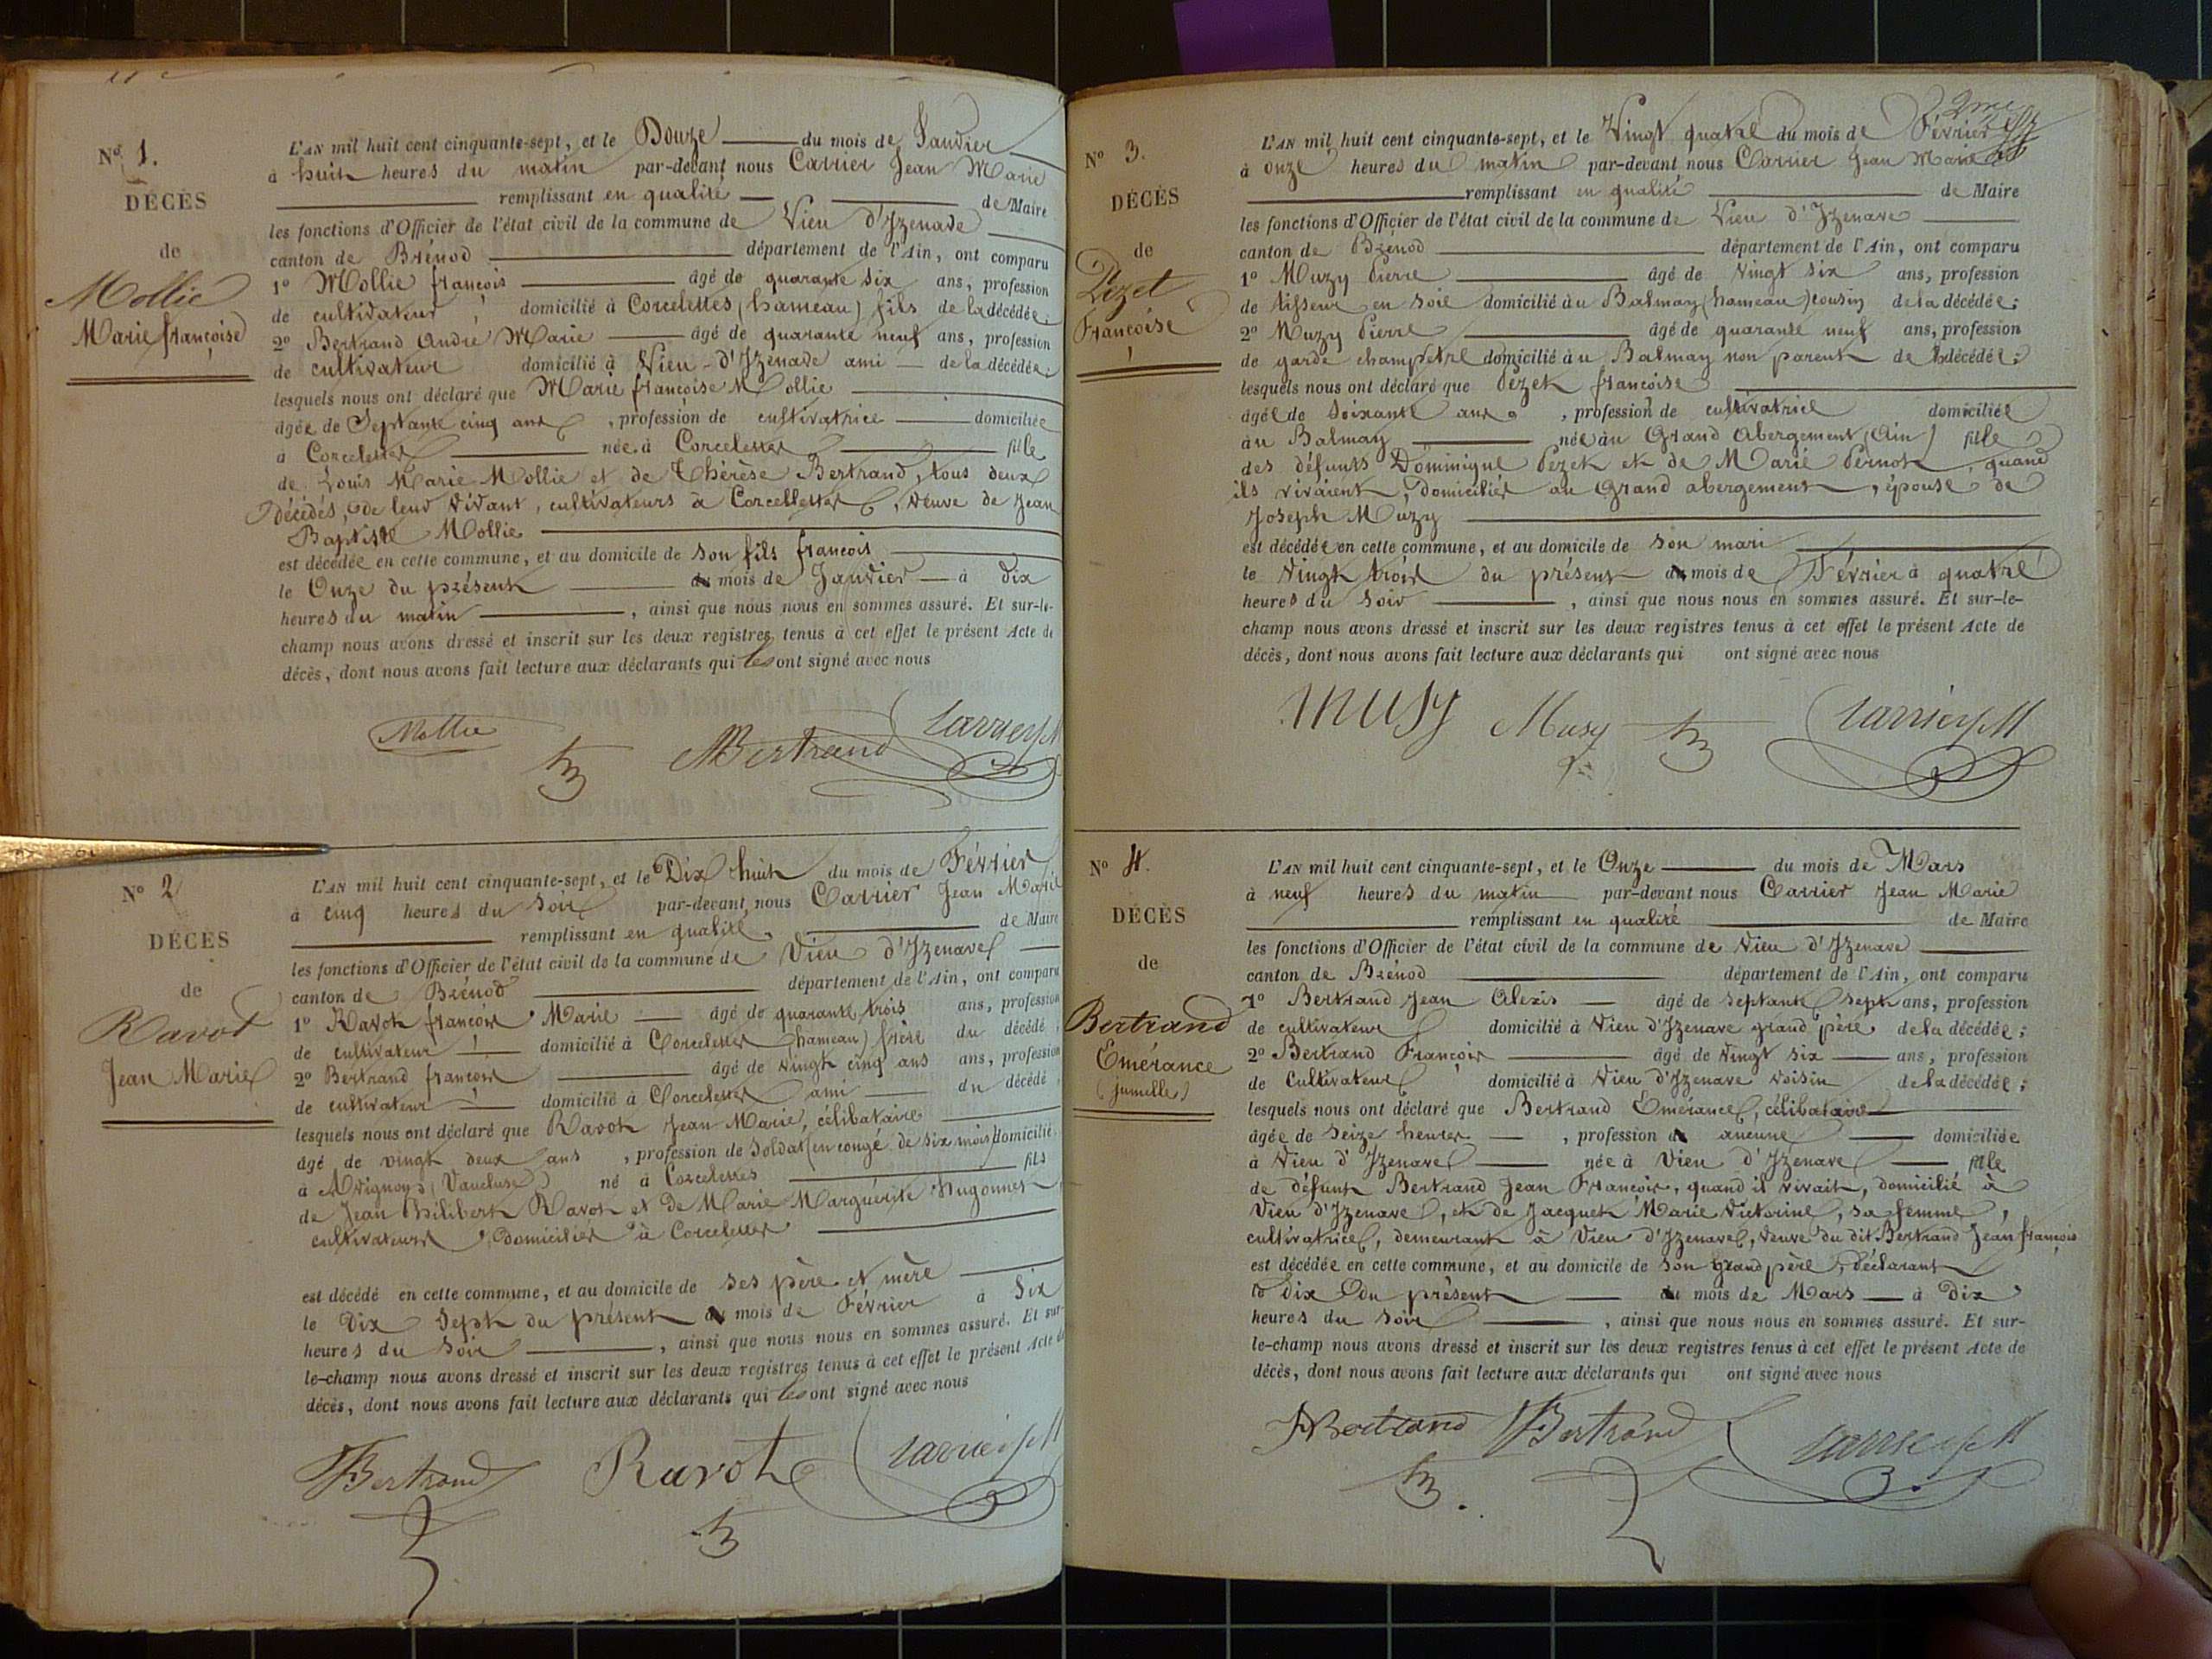 N° 1.
DÉCÈS
de
Mollie
Marie françoise
L'AN mil huit cent cinquante-sept, et le Douze du mois de Janvier
à huit heures du matin par-devant nous Carrier Jean Marie
remplissant en qualité de Maire
les fonctions d'Officier de l'état civil de la commune de Vieu d'Izenave
canton de Brénod département de l'Ain, ont comparu
1° Mollie françois âgé de quarante six ans, profession
de cultivateur, domicilié à Corcelettes (hameau) fils de la décédée;
2° Bertrand André Marie âgé de quarante neuf ans, profession
de cultivateur domicilié à Vieu-d'Izenave ami de la décédée;
lesquels nous ont déclaré que Marie françoise Mollie
âgée de Septante cinq ans, profession de cultivatrice domiciliée
à Corcelettes née à Corcelettes fille
de Louis Marie Mollie et de Thérèse Bertrand, tous deux
décédés, de leur vivant, cultivateurs à Corcellettes, veuve de Jean
Baptiste Mollie
est décédée en cette commune, et au domicile de son fils françois
le Onze du présent mois de Janvier à dix
heures du matin, ainsi que nous nous en sommes assuré. Et sur-le-
champ nous avons dressé et inscrit sur les deux registres tenus à cet effet le présent Acte de
décès, dont nous avons fait lecture aux déclarants qui les ont signé avec nous
Mollie Bertrand Carrier JM
N° 2
DÉCÈS
de
Ravot
Jean Marie
L'AN mil huit cent cinquante-sept, et le Dix huit du mois de Février
à cinq heures du soir par-devant nous Carrier Jean Marie
remplissant en qualité de Maire
les fonctions d'Officier de l'état civil de la commune de Vieu d'Izenave
canton de Brénod département de l'Ain, ont comparu
1° Ravot françois Marie âgé de quarante trois ans, profession
de cultivateur domicilié à Corcelettes (hameau) frère du décédé;
2° Bertrand françois âgé de vingt cinq ans ans, profession
de cultivateur domicilié à Corcelettes ami du décédé;
lesquels nous ont déclaré que Ravot Jean Marie, célibataire
âgé de vingt deux ans, profession de Soldat (en congé de six mois) domicilié
à Avignon (Vaucluse) né à Corcelettes fils
de Jean Philibert Ravot et de Marie Marguerite Hugonnet,
cultivateurs, domiciliés à Corcelettes
est décédé en cette commune, et au domicile de ses père et mère
le Dix Sept du présent mois de Février à Six
heures du soir, ainsi que nous nous en sommes assuré. Et sur-
le-champ nous avons dressé et inscrit sur les deux registres tenus à cet effet le présent Acte de
décès, dont nous avons fait lecture aux déclarants qui les ont signé avec nous
Bertrand Ravot Carrier JM
2me
N° 3.
DÉCÈS
de
Pézet
Françoise
L'AN mil huit cent cinquante-sept, et le Vingt quatre du mois de Février
à onze heures du matin par-devant nous Carrier Jean Marie
remplissant en qualité de Maire
les fonctions d'Officier de l'état civil de la commune de Vieu d'Izenave
canton de Brénod département de l'Ain, ont comparu
1° Muzy Pierre âgé de vingt six ans, profession
de tisseur en soie domicilié à u Balmay (hameau) cousin de la décédée;
2° Muzy Pierre âgé de quarante neuf ans, profession
de garde champêtre domicilié à u Balmay non parent de la décédée;
lesquels nous ont déclaré que Pézet françoise
âgée de Soixante ans, profession de cultivatrice domiciliée
àu Balmay née àu Grand Abergement (Ain) fille
des défunts Dominique Pezet et de Marie Pernot, quand
ils vivaient, domiciliés au Grand abergement, épouse de
Joseph Muzy
est décédée en cette commune, et au domicile de son mari
le Vingt trois du présent mois de Février à quatre
heures du soir, ainsi que nous nous en sommes assuré. Et sur-le-
champ nous avons dressé et inscrit sur les deux registres tenus à cet effet le présent Acte de
décès, dont nous avons fait lecture aux déclarants qui ont signé avec nous
Musy Musy Carrier JM
N° 4.
DÉCÈS
de
Bertrand
Emérance
(jumelle)
L'AN mil huit cent cinquante-sept, et le Onze du mois de Mars
à neuf heures du matin par-devant nous Carrier Jean Marie
remplissant en qualité de Maire
les fonctions d'Officier de l'état civil de la commune de Vieu d'Izenave
canton de Brénod département de l'Ain, ont comparu
1° Bertrand Jean Alexis âgé de Septante Sept ans, profession
de cultivateur domicilié à Vieu d'Izenave grand père de la décédée;
2° Bertrand François âgé de vingt six ans, profession
de Cultivateur domicilié à Vieu d'Izenave voisin de la décédée;
lesquels nous ont déclaré que Bertrand Emérance, célibataire
âgée de Seize heures, profession aucune domiciliée
à Vieu d'Izenave née à Vieu d'Izenave fille
de défunt Bertrand Jean François, quand il vivait, domicilié à
Vieu d'Izenave, et de Jacquet Marie Victorine, sa femme,
cultivatrice, demeurant à Vieu d'Izenave, veuve du dit Bertrand Jean françois
est décédée en cette commune, et au domicile de son grand père, déclarant
le Dix du présent mois de Mars à Dix
heures du soir, ainsi que nous nous en sommes assuré. Et sur-
le-champ nous avons dressé et inscrit sur les deux registres tenus à cet effet le présent Acte de
décès, dont nous avons fait lecture aux déclarants qui ont signé avec nous
Bertrand Bertrand Carrier JM